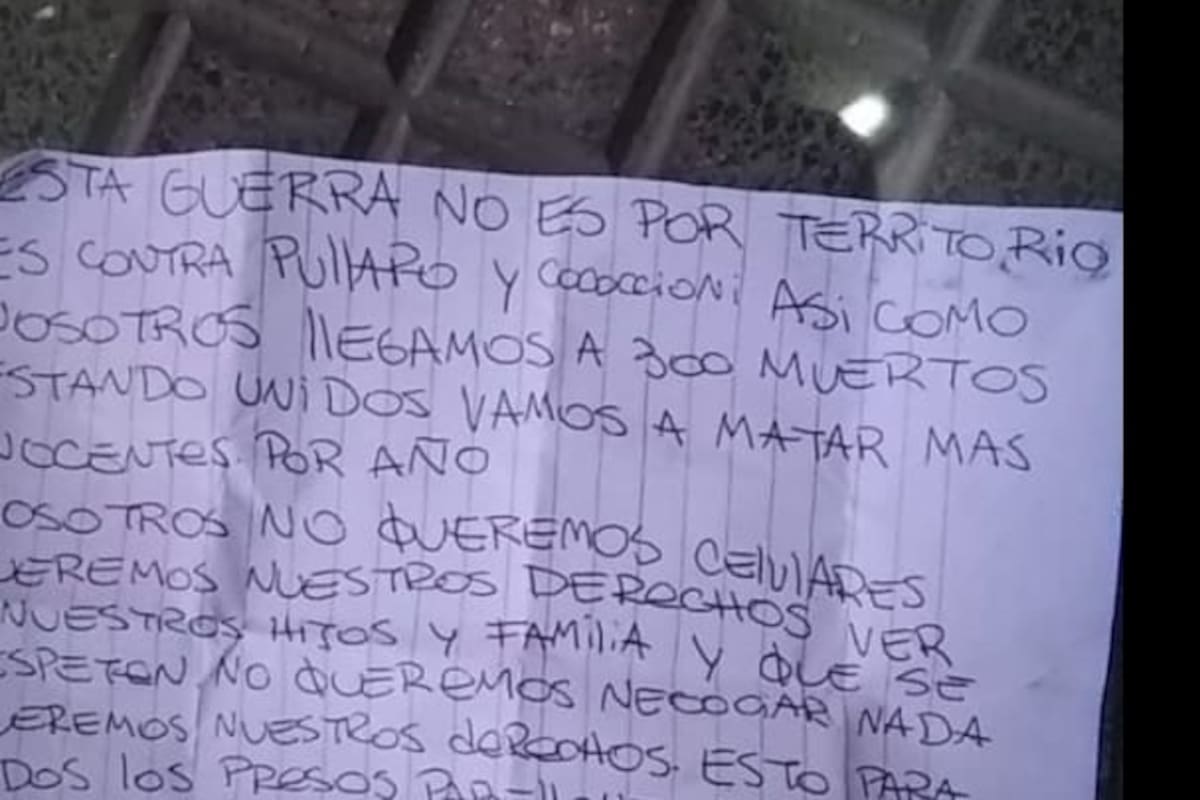 ESTA GUERRA NO ES POR TERRITORIO
ES CONTRA PUllARO Y COCOCCIONi ASi COMO
NOSOTROS llEGAMOS A 300 MUERTOS
ESTANDO UNiDOS VAMOS A MATAR MAS
NOCENTES. POR AÑO
OSOTROS NO QUEREMOS CElUlARES
UEREMOS NUESTROS DERECHOS VER
NUESTROS HIJOS Y FAMiliA Y QUE SE
ESPETEN NO QUEREMOS NEGOCIAR NADA
UEREMOS NUESTROS dERECHOS. ESTO PARA
DOS lOS PRESOS